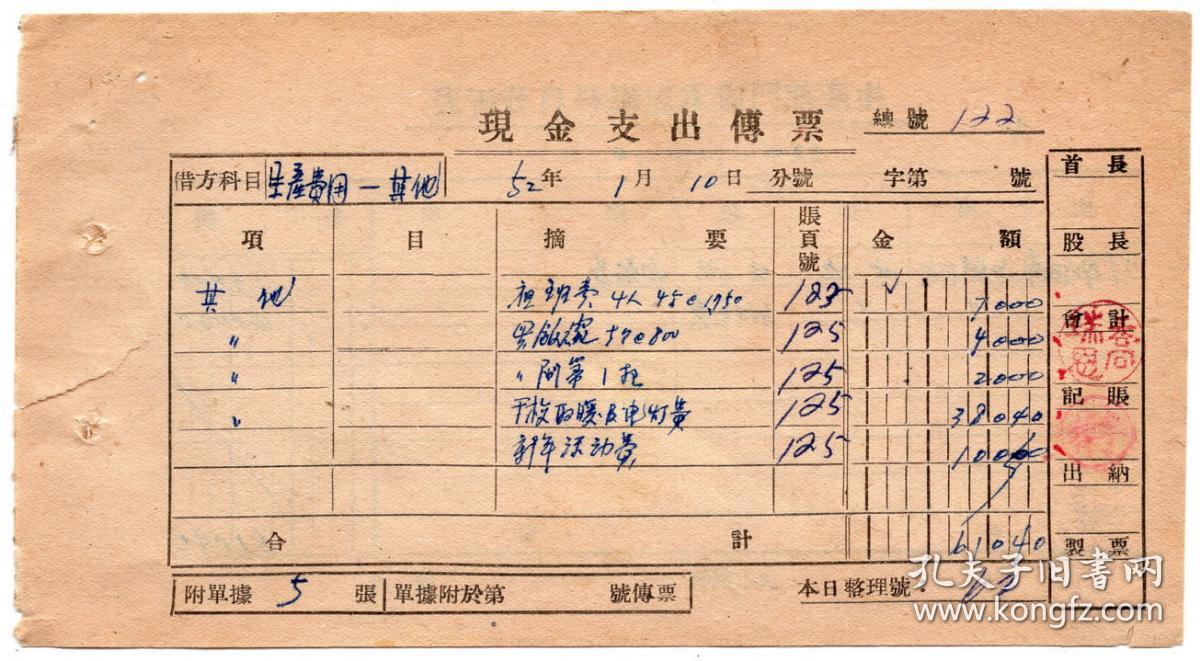 現金支出傳票
總號 122
借方科目 生產費用－其他 52年 1月 10日 分號 字第 號
項 目 摘 要 賬頁號 金 額
其他 班費 4人 125 7000
〃 125 4000
〃 〃 第1 125 2000
〃 干校取暖及电灯費 125 38040
新年活动費 125 10000
合 計 61040
附單據 5 張 單據附於第 號傳票
本日整理號：
首長
股長
會計
記賬
出納
製票
孔夫子旧书网
www.kongfz.com